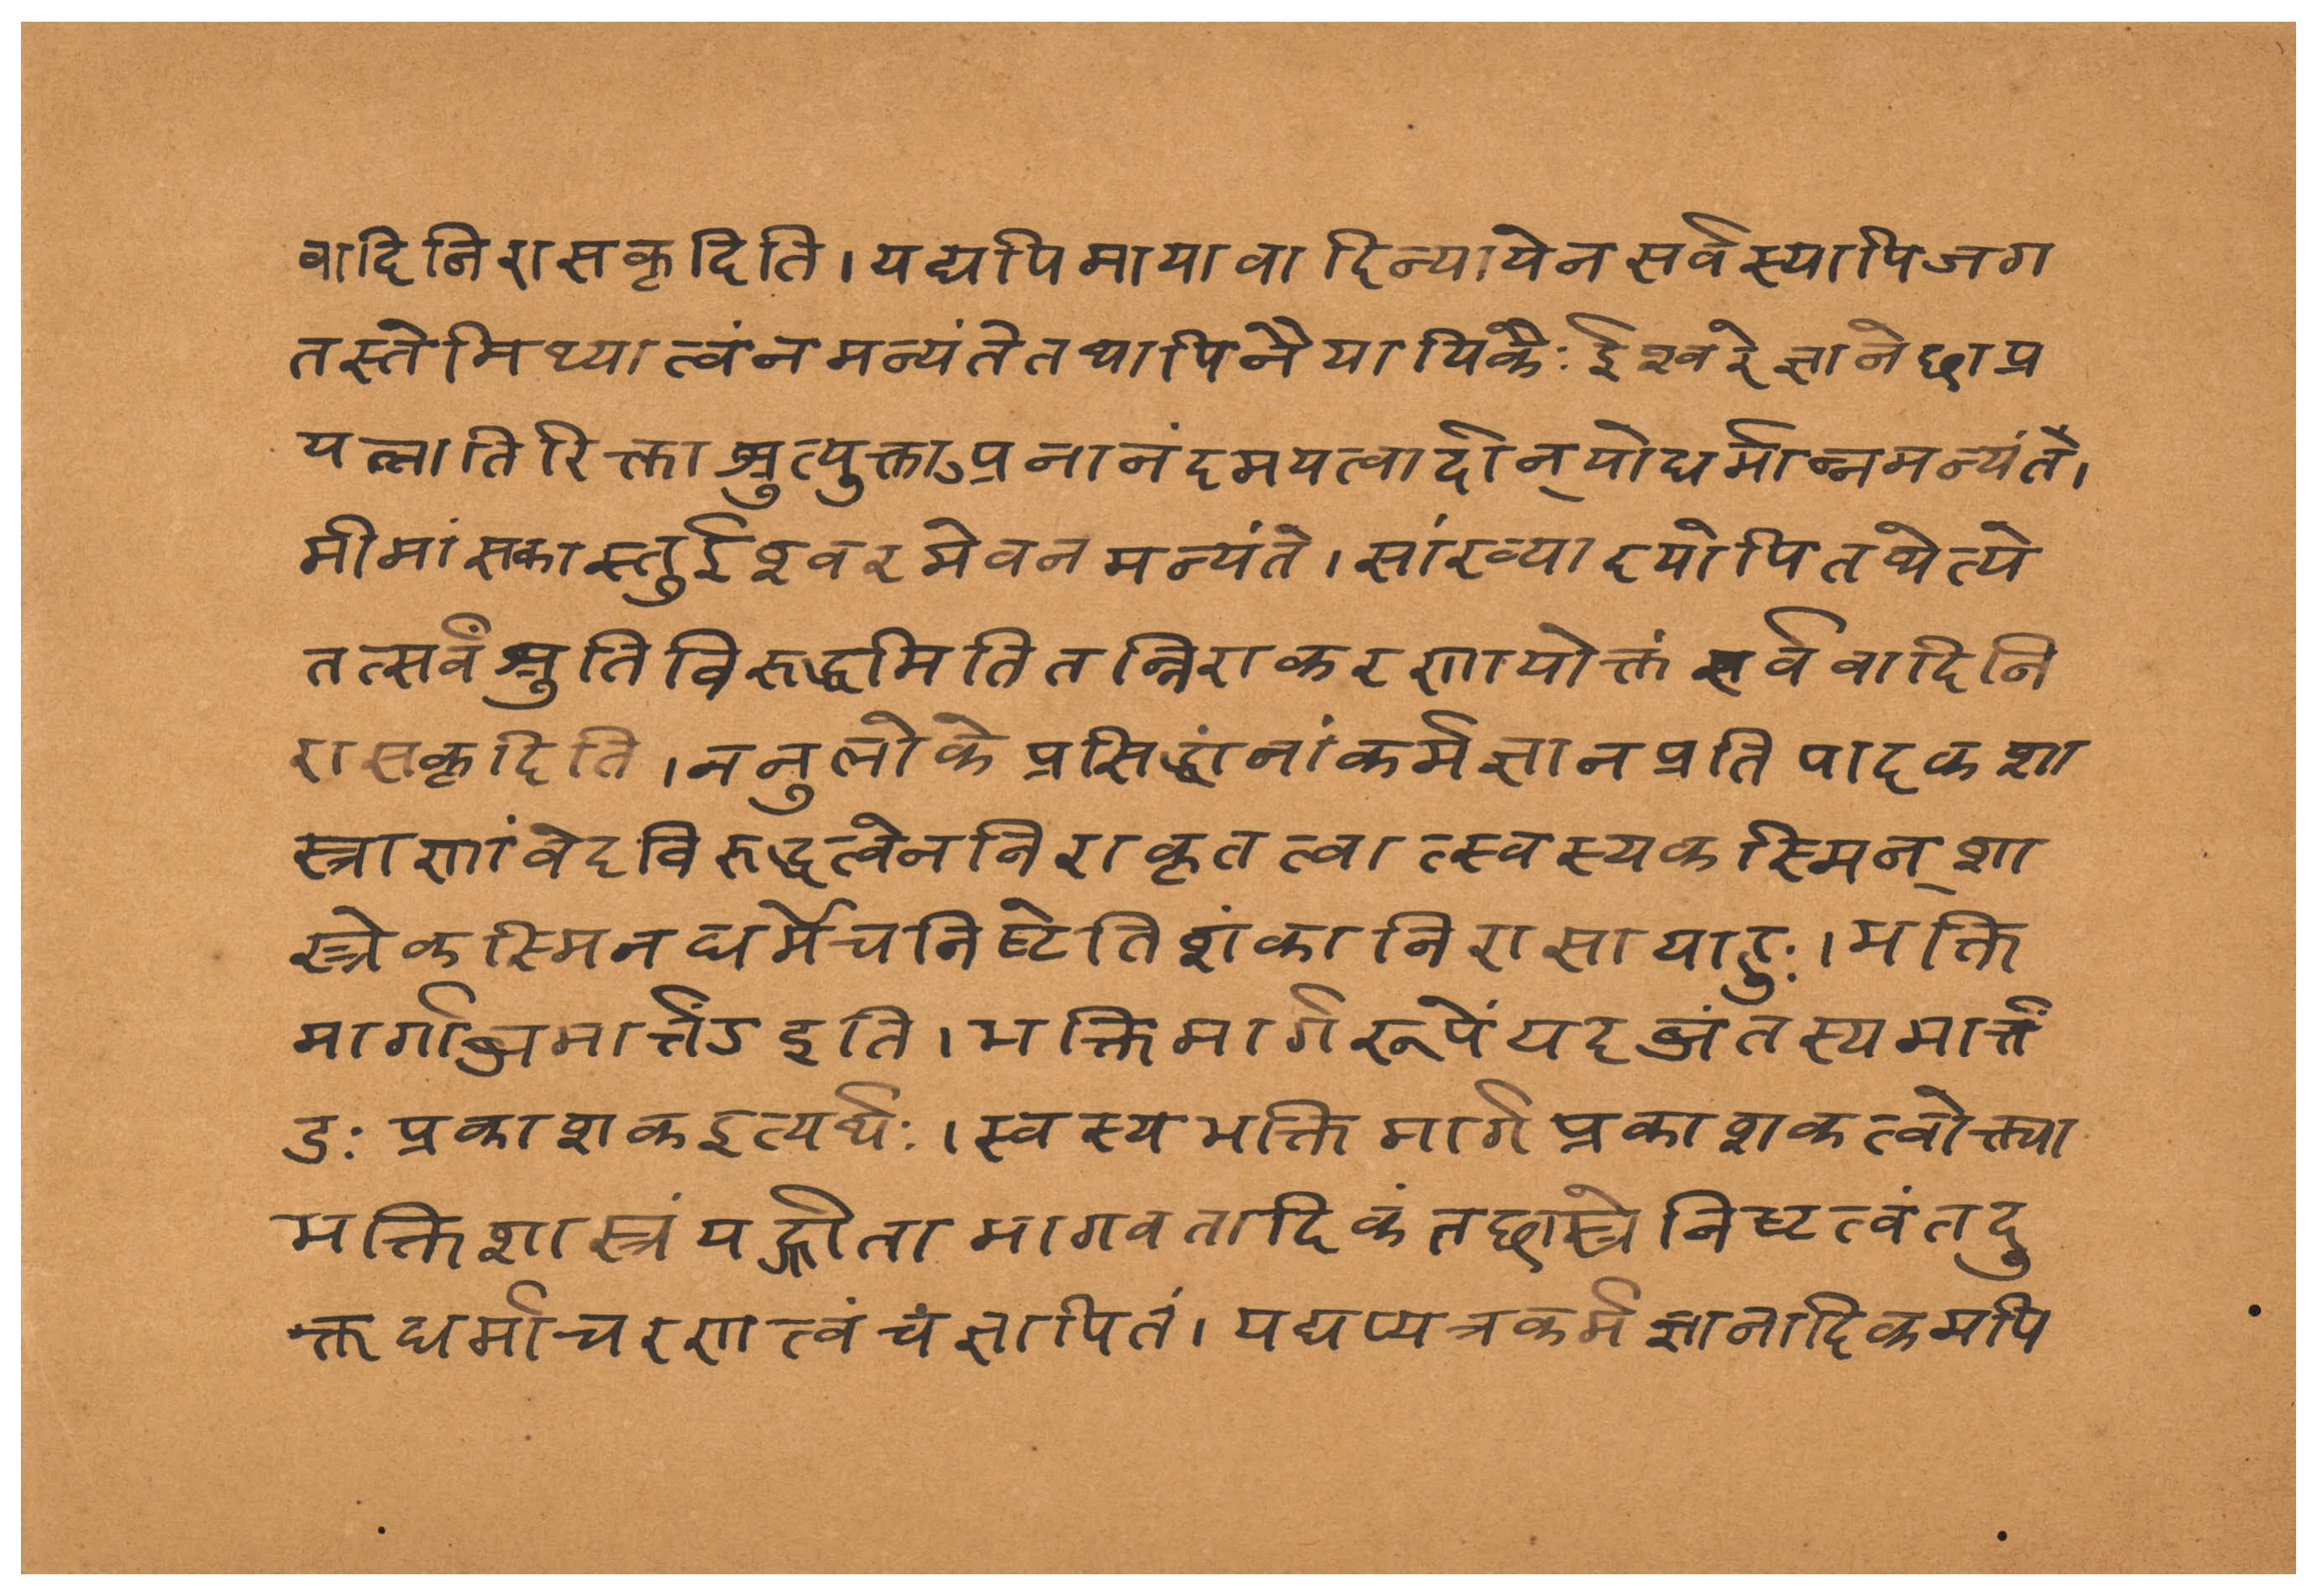 वादिनिरासकृदिति।यद्यपिमायावादिन्यायेनसर्वस्यापिजग
तस्तेमिथ्यात्वंनमन्यंतेतथापिनैयायिकैःईश्वरेज्ञानेछाप्र
यत्नातिरिक्ताश्रुत्युक्ताऽप्रनानंदमयत्वादीन्योधर्मान्नमन्यंते।
मीमांसकास्तुईश्वरमेवनमन्यंते।सांख्यादयोपितथेत्ये
तत्सर्वंश्रुतिविरुद्धमितितन्निराकरणायोक्तंसर्ववादिनि
रासकृदिति।ननुलोकेप्रसिद्धांनांकर्मज्ञानप्रतिपादकशा
स्त्राणांवेदविरुद्धत्वेननिराकृतत्वात्स्वस्यकस्मिन्शा
स्त्रेकस्मिनधर्मेचनिष्टेतिशंकानिरासायाहुः।भक्ति
मार्गाब्जमार्त्तंडइति।भक्तिमार्गरूपेंयदब्जंतस्यमार्त्तं
डः प्रकाशकइत्यर्थः।स्वस्यभक्तिमार्गप्रकाशकत्वोक्त्या
भक्तिशास्त्रंयद्गीताभागवतादिकंतछास्त्रेनिष्टत्वंतदु
क्तधर्माचरणत्वंचंज्ञापितं।यद्यप्यत्रकर्मज्ञानादिकमपि